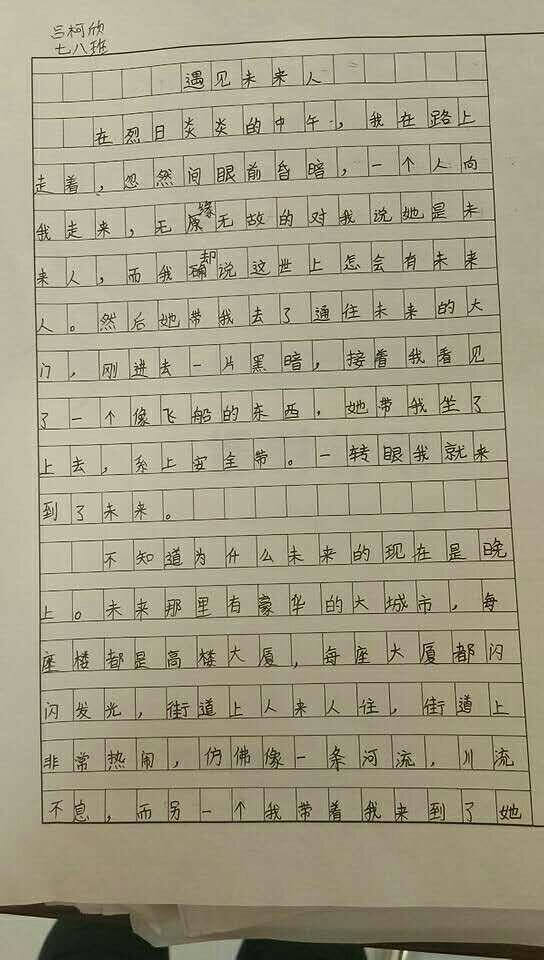 吕柯欣
七八班
遇见未来人
在烈日炎炎的中午，我在路上
走着，忽然间眼前昏暗，一个人向
我走来，无缘无故的对我说她是未
来人，而我却说这世上怎会有未来
人。然后她带我去了通往未来的大
门，刚进去一片黑暗，接着我看见
了一个像飞船的东西，她带我坐了
上去，系上安全带。一转眼我就来
到了未来。
不知道为什么未来的现在是晚
上。未来那里有豪华的大城市，每
座楼都是高楼大厦，每座大厦都闪
闪发光，街道上人来人往，街道上
非常热闹，仿佛像一条河流，川流
不息，而另一个我带着我来到了她